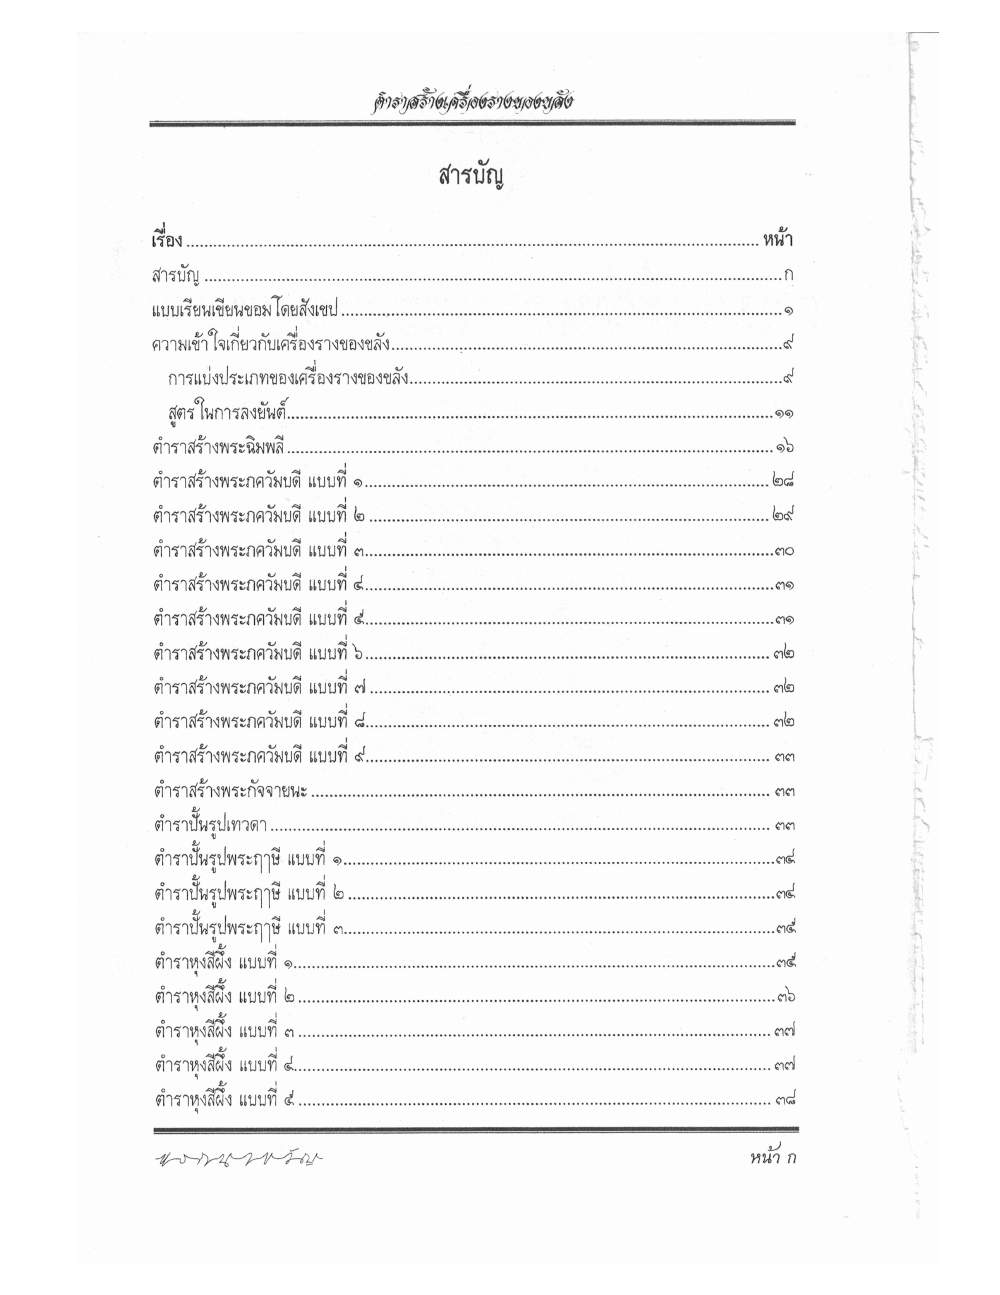 ตำราสร้างเครื่องรางของขลัง
สารบัญ
เรื่อง ........ หน้า
สารบัญ ........ ก
แบบเรียนเขียนขอมโดยสังเขป ........ ๑
ความเข้าใจเกี่ยวกับเครื่องรางของขลัง ........ ๙
การแบ่งประเภทของเครื่องรางของขลัง ........ ๙
สูตรในการลงยันต์ ........ ๑๑
ตำราสร้างพระฉิมพลี ........ ๑๖
ตำราสร้างพระภควัมบดี แบบที่ ๑ ........ ๒๘
ตำราสร้างพระภควัมบดี แบบที่ ๒ ........ ๒๙
ตำราสร้างพระภควัมบดี แบบที่ ๓ ........ ๓๐
ตำราสร้างพระภควัมบดี แบบที่ ๔ ........ ๓๑
ตำราสร้างพระภควัมบดี แบบที่ ๕ ........ ๓๑
ตำราสร้างพระภควัมบดี แบบที่ ๖ ........ ๓๒
ตำราสร้างพระภควัมบดี แบบที่ ๗ ........ ๓๒
ตำราสร้างพระภควัมบดี แบบที่ ๘ ........ ๓๒
ตำราสร้างพระภควัมบดี แบบที่ ๙ ........ ๓๓
ตำราสร้างพระกัจจายนะ ........ ๓๓
ตำราปั้นรูปเทวดา ........ ๓๓
ตำราปั้นรูปพระฤๅษี แบบที่ ๑ ........ ๓๔
ตำราปั้นรูปพระฤๅษี แบบที่ ๒ ........ ๓๔
ตำราปั้นรูปพระฤๅษี แบบที่ ๓ ........ ๓๕
ตำราหุงสีผึ้ง แบบที่ ๑ ........ ๓๕
ตำราหุงสีผึ้ง แบบที่ ๒ ........ ๓๖
ตำราหุงสีผึ้ง แบบที่ ๓ ........ ๓๗
ตำราหุงสีผึ้ง แบบที่ ๔ ........ ๓๗
ตำราหุงสีผึ้ง แบบที่ ๕ ........ ๓๘
หน้า ก